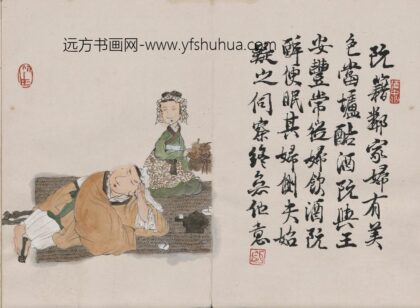 远方书画网-www.yfshuhua.com
阮籍鄰家婦有美
色當壚酤酒阮與王
安豐常從婦飲酒阮
醉便眠其婦側夫始
疑之伺察終無他意